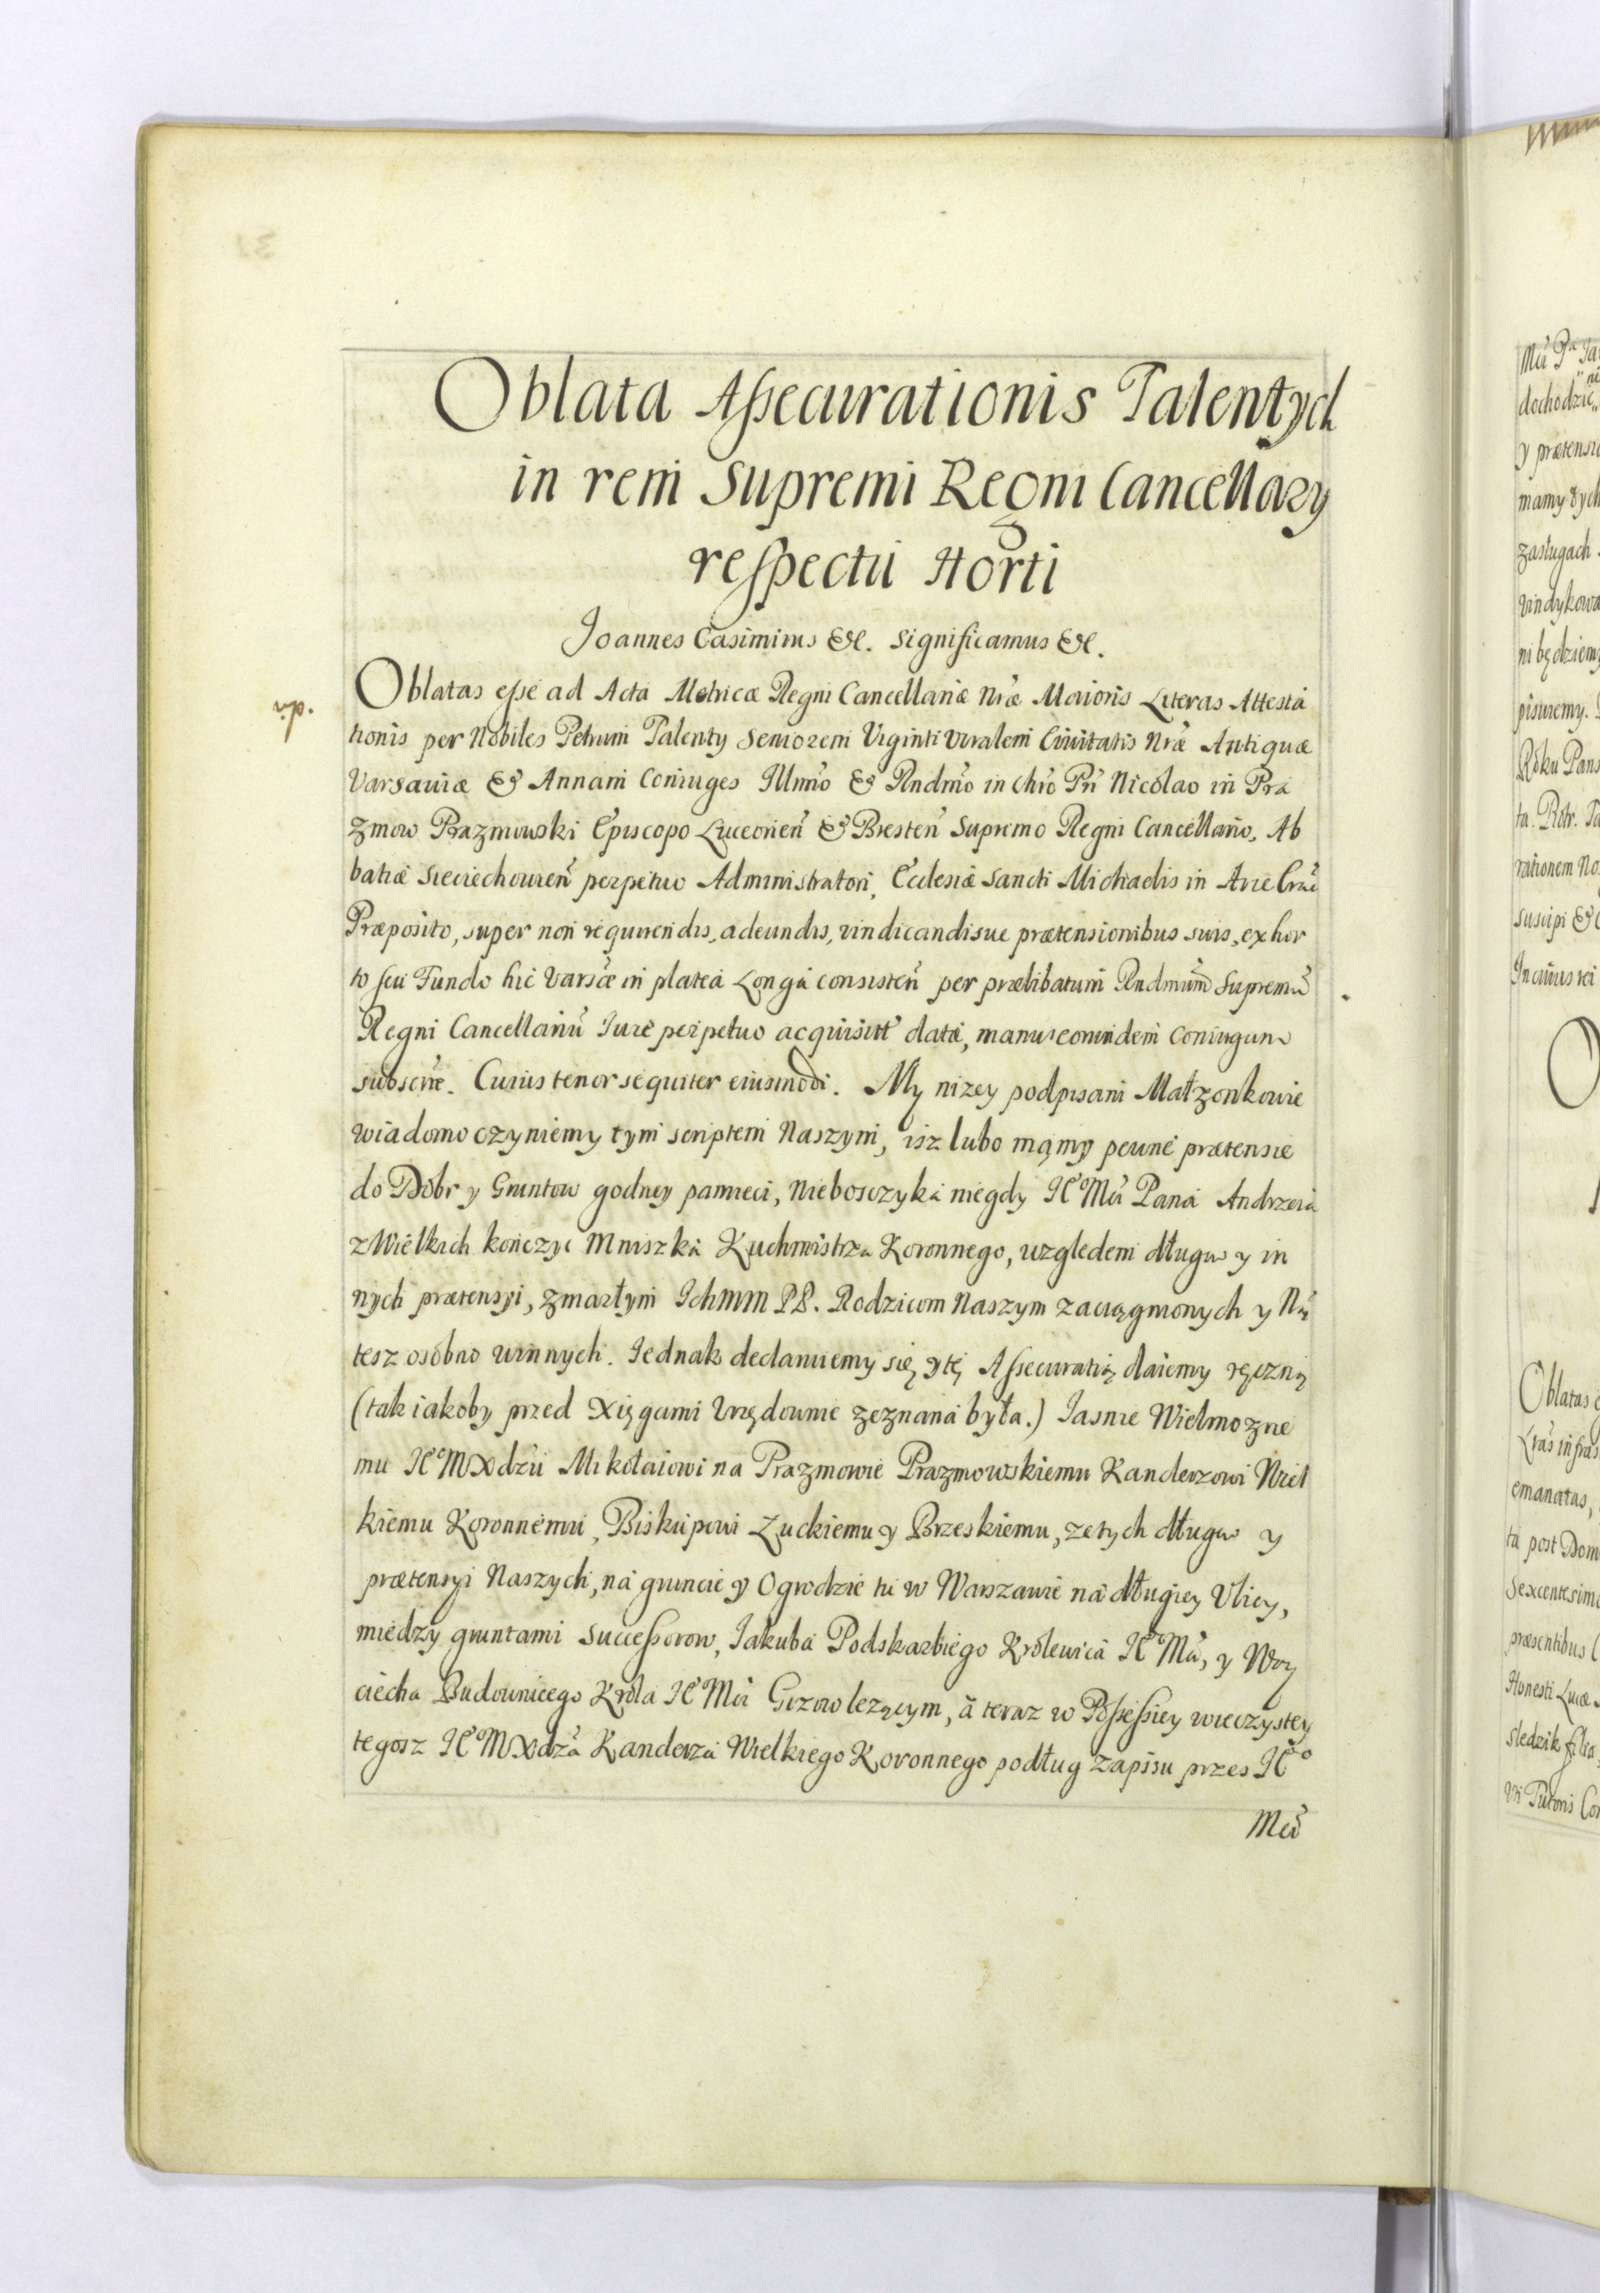 Oblata Assecurationis Talentych
in rem Supremi Regni Cancellary
respectu Horti
Joannes Casimirus &c. Significamus &c.
Oblatas esse ad Acta Metricæ Regni Cancellariæ Nræ Maioris Literas Attesta
tionis per Nobiles Petrum Talenty Seniorem Viginti Viralem Civitatis Nræ Antiquæ
Varsaviæ & Annam Coniuges Illmo & Rndmo in Chro Pri Nicolao in Pra
zmow Prazmowski Episcopo Luceorien & Bresten Supremo Regni Cancellario, Ab
batiæ Sieciechovien perpetuo Administratori, Ecclesiæ Sancti Michaelis in Arce Crac
Præposito, super non requirendis, adeundis, vindicandisue prætensionibus suis, ex hor
to seu Fundo hic Varsæ in platea Longa consisten per prælibatum Rndmum Supremu
Regni Cancellariu Iure perpetuo acquisitt data, manu eorundem Coniugum
subscrre. Cuius tenor sequiter eiusmodi. My nizey podpisani Małzonkowie
wiadomo czyniemy tym scriptem Naszym, isz lubo mamy pewne prætensie
do Dobr y Gruntow godney pamieci, Nieboszczyka niegdy JE Mci Pana Andrzeia
z Wielkich kończyc Mniszka Kuchmistrza Koronnego, względem długow y in
nych prætensyi, zmarłym Ichmm PP. Rodzicom Naszym zaciągnionych y Na
tesz osobno winnych. Jednak declaruiemy się y tę Assecuratią daiemy ręczną
(tak iakoby przed Xięgami Urzędownie zeznana była.) Iasnie Wielmozne
mu JE M Xdzu Mikołaiowi na Prazmowie Prazmowskiemu Kanclerzowi Wiel
kiemu Koronnemu, Biskupowi Łuckiemu y Brzeskiemu, ze tych długow y
prætensyi Naszych, na gruncie y Ogrodzie tu w Warszawie na długiey Vlicy,
miedzy gruntami successorow, Jakuba Podskarbiego Krolewica JE Mci, y Woy
ciecha Budowniczego Krola JE Mci Gizow lezącym, á teraz w Possessiey wieczystey
tegosz JE M Xdza Kanclerza Wielkiego Koronnego podług Zapisu przes JEo
Mci